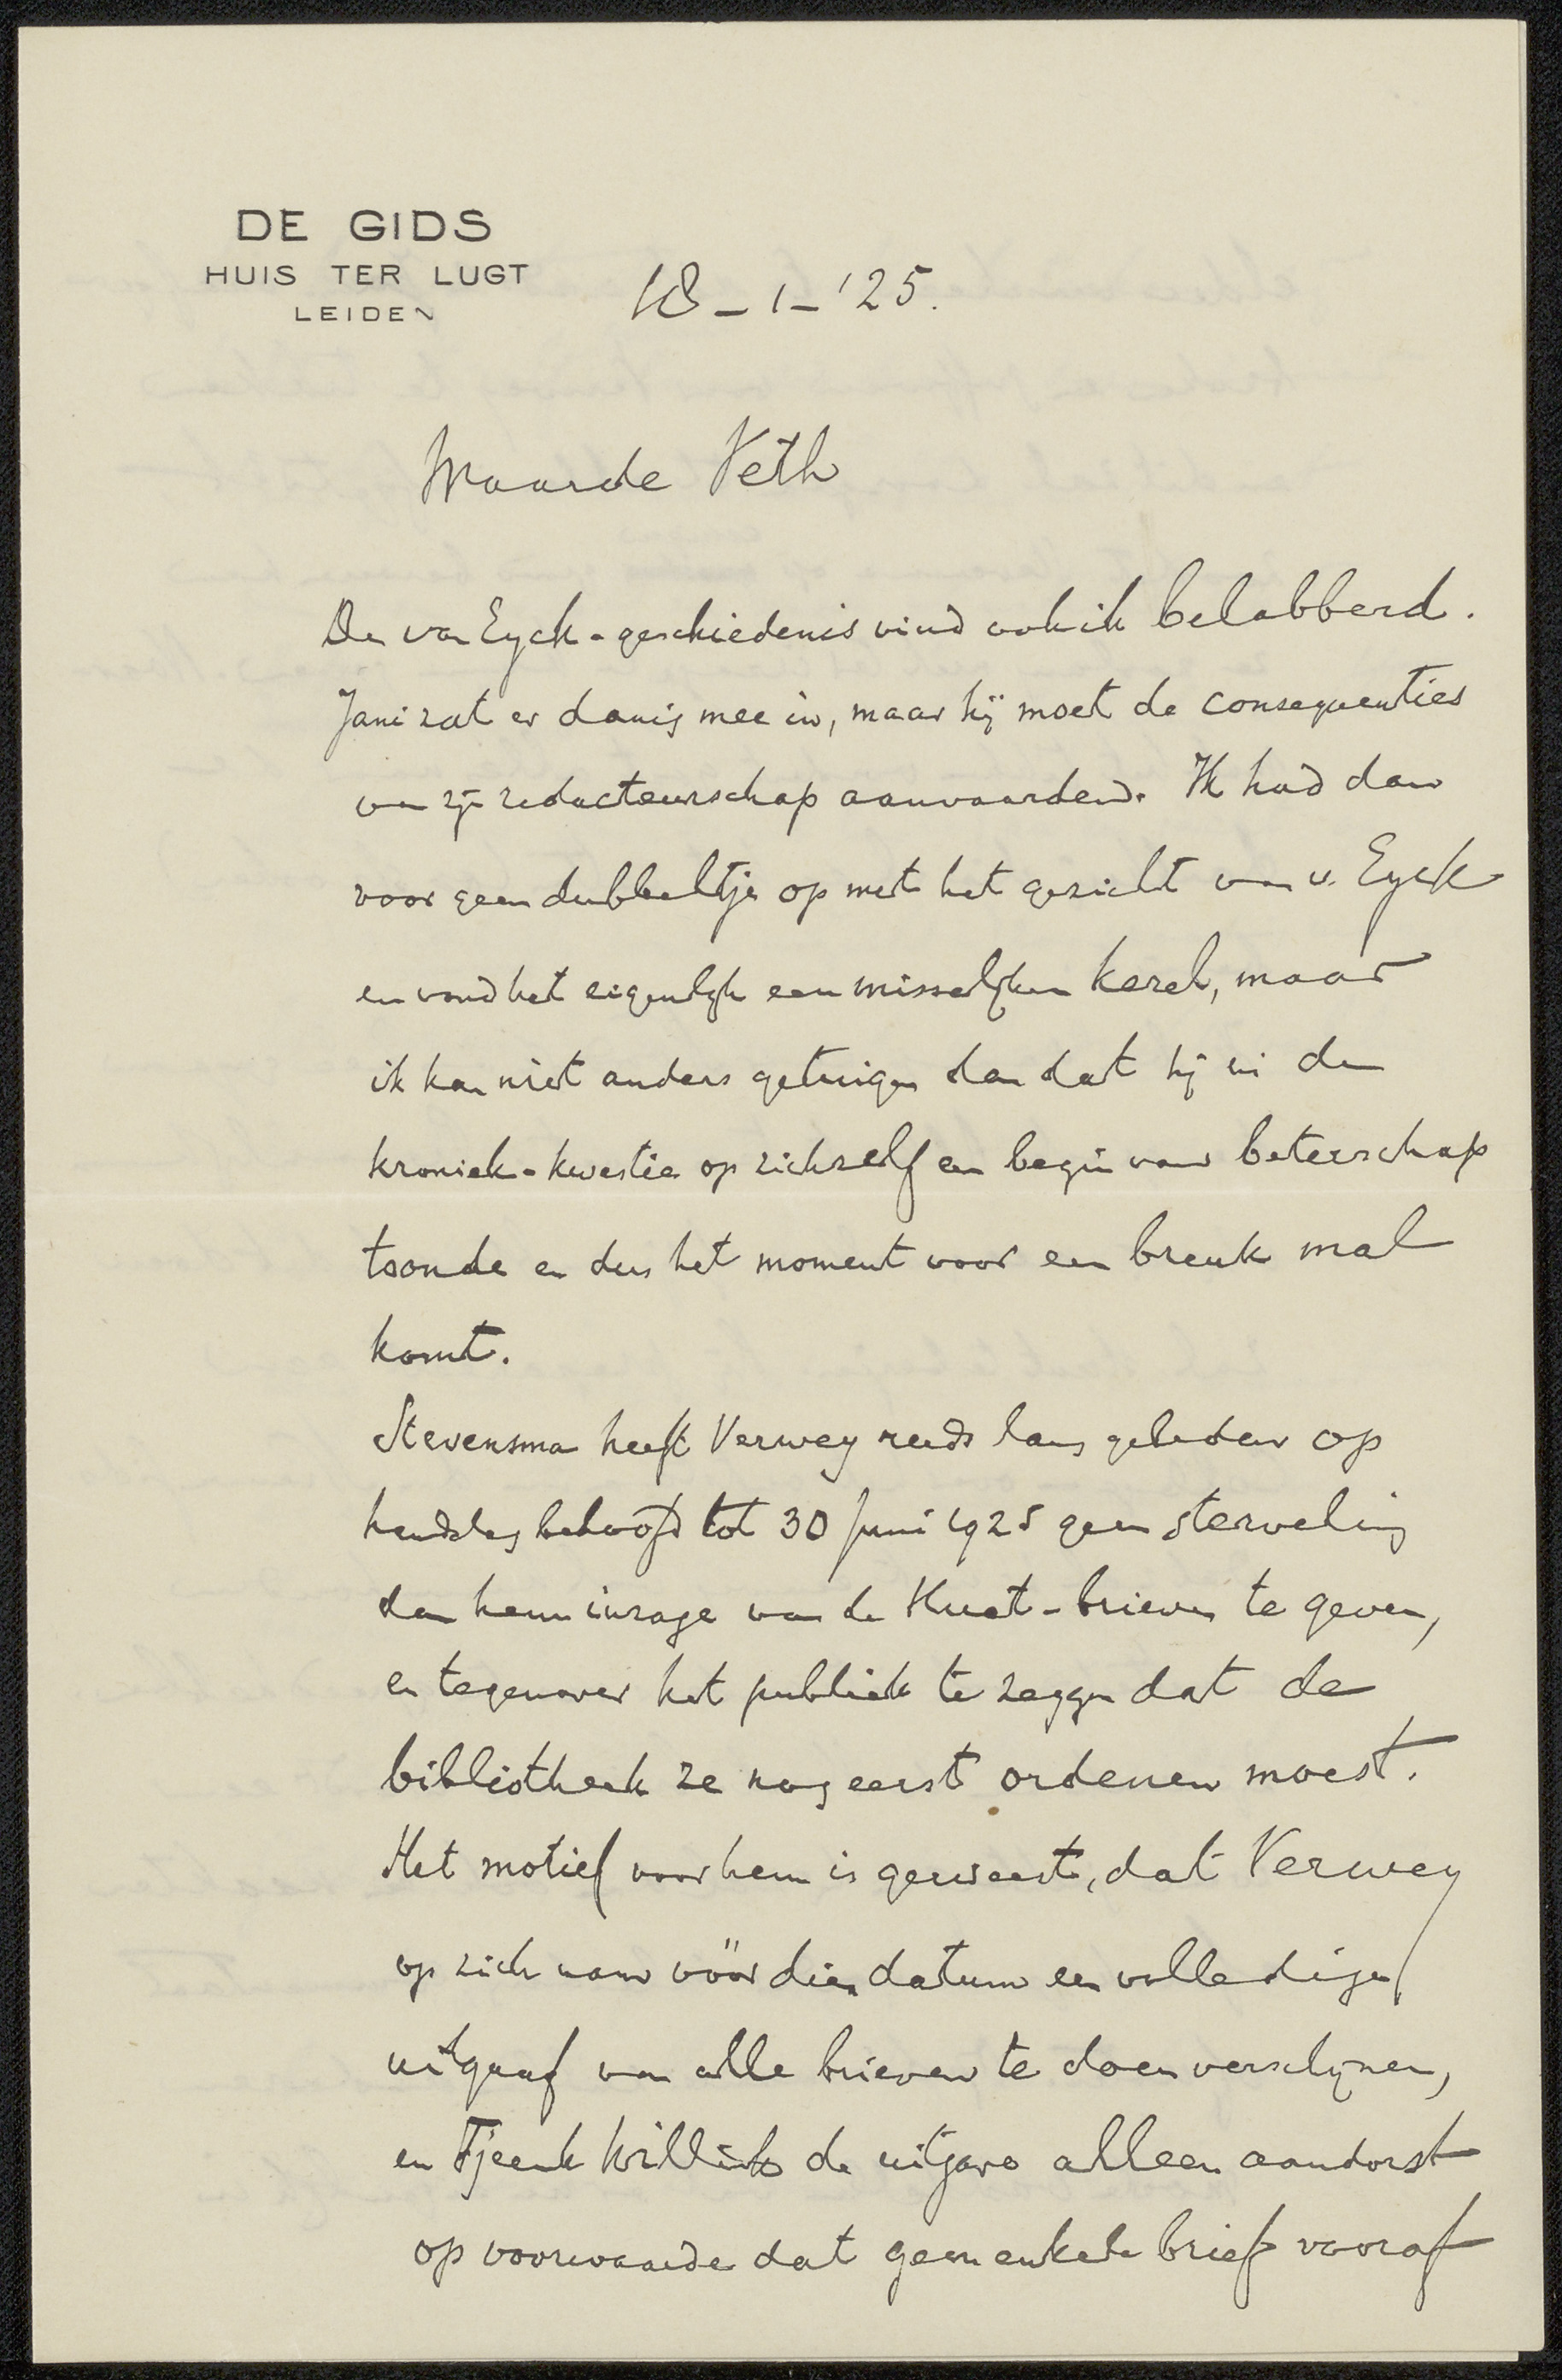 DE GIDS
HUIS TER LUGT
LEIDEN
18-1-'25.
Waarde Veth
De van Eyck-geschiedenis vind ook ik belabberd.
Jani zat er danig mee in, maar hij moet de consequenties
van zijn redacteurschap aanvaarden. Ik had dan
voor geen dubbeltje op met het gezicht van v. Eyck
en vond het eigenlijk een misselijken kerel, maar
ik kan niet anders getuigen dan dat hij in de
kroniek-kwestie op zichzelf een begin van beterschap
toonde en dus het moment voor een breuk mal
komt.
Stevensma heeft Verwey reeds lang geleden op
handslag beloofd tot 30 Juni 1925 geen sterveling
dan hem inzage van de Huet-brieven te geven,
en tegenover het publiek te zeggen dat de
bibliotheek ze nog eerst ordenen moest.
Het motief voor hem is geweest, dat Verwey
op zich nam vóór dien datum een volledige
uitgaaf van alle brieven te doen verschijnen,
en Tjeenk Willink de uitgave alleen aandorst
op voorwaarde dat geen enkele brief vooraf